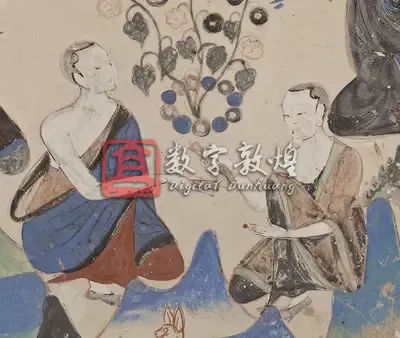 数字敦煌
Digital DunHuang